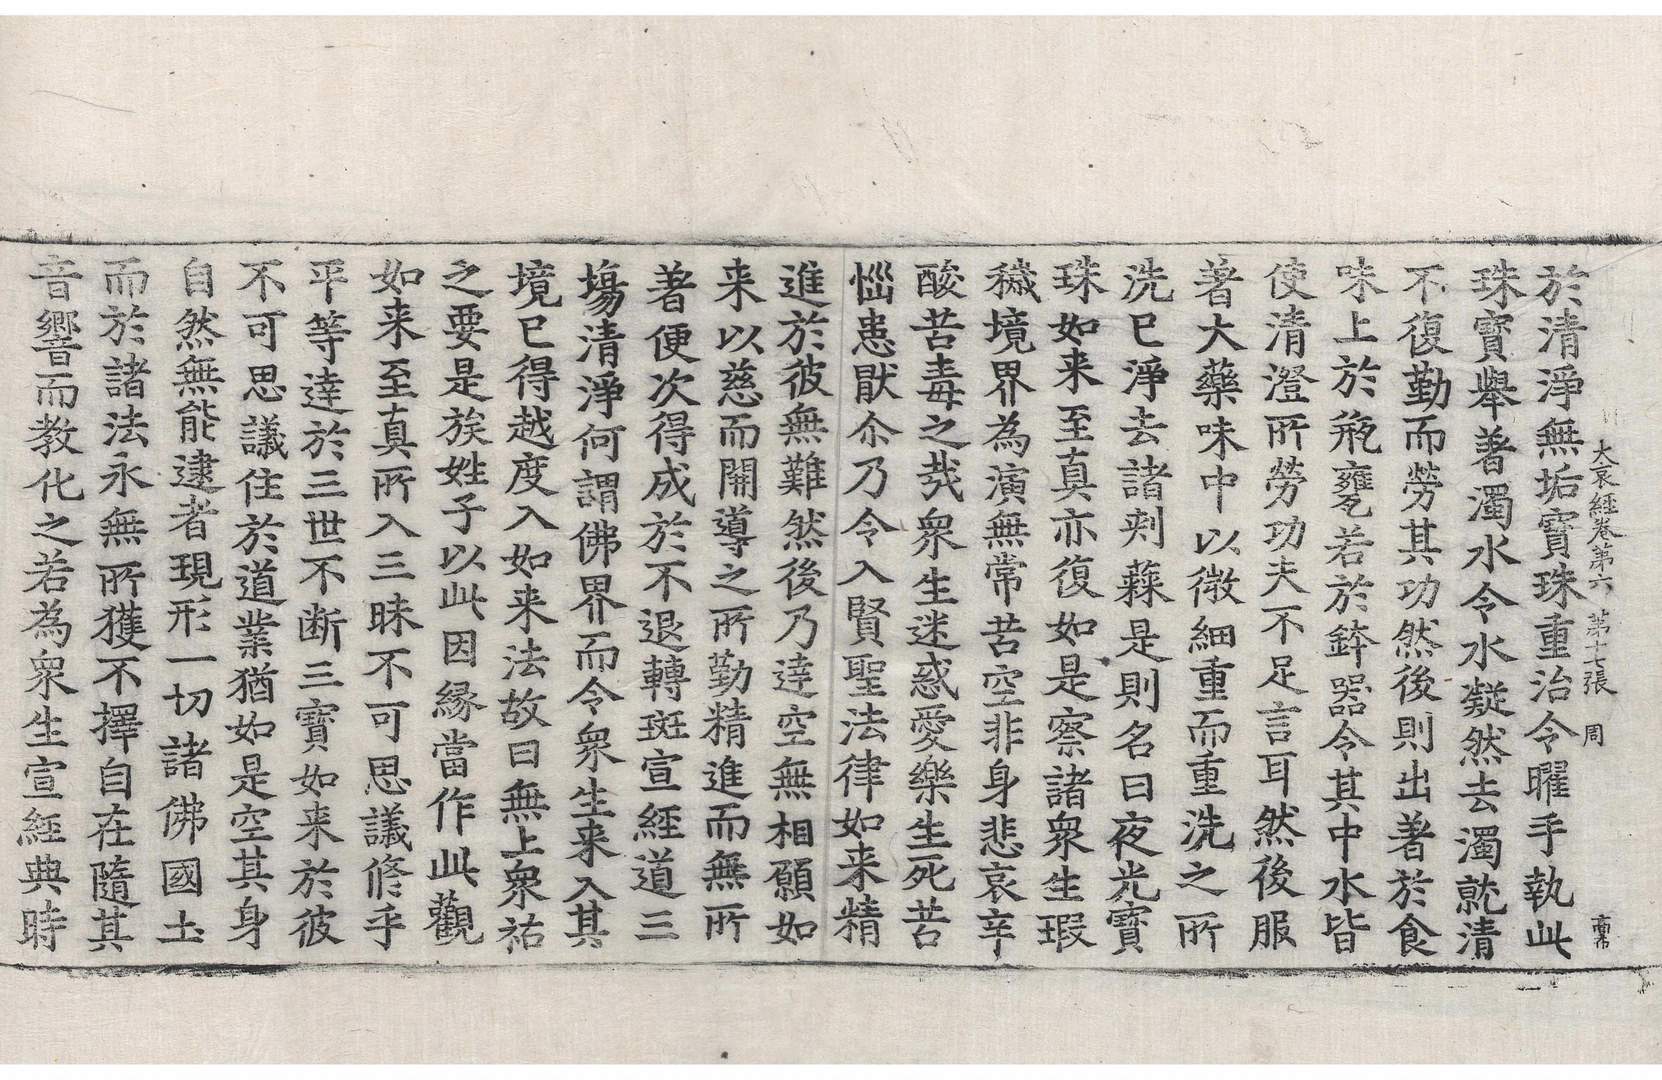 大哀經卷第六 第十七張 周
於清淨無垢寶珠重治令曜手執此
珠寶舉著濁水令水凝然去濁就清
不復勤而勞其功然後則出著於食
味上於瓶甕若於鉢器令其中水皆
使清澄所勞功夫不足言耳然後服
著大藥味中以微細重而重洗之所
洗已淨去諸刾蕀是則名曰夜光寶
珠如来至真亦復如是察諸衆生瑕
穢境界為演無常苦空非身悲哀辛
酸苦毒之㢤衆生迷惑愛樂生死苦
惱患猒尒乃令入賢聖法律如来精
進於彼無難然後乃達空無相願如
来以慈而開導之所勤精進而無所
著便次得成於不退轉斑宣經道三
塲清淨何謂佛界而令衆生来入其
境已得越度入如来法故曰無上衆祐
之要是族姓子以此因縁當作此觀
如来至真所入三昧不可思議修乎
平等達於三世不断三寶如来於彼
不可思議住於道業猶如是空其身
自然無能逮者現形一切諸佛國土
而於諸法永無所獲不擇自在隨其
音響而教化之若為衆生宣經典時